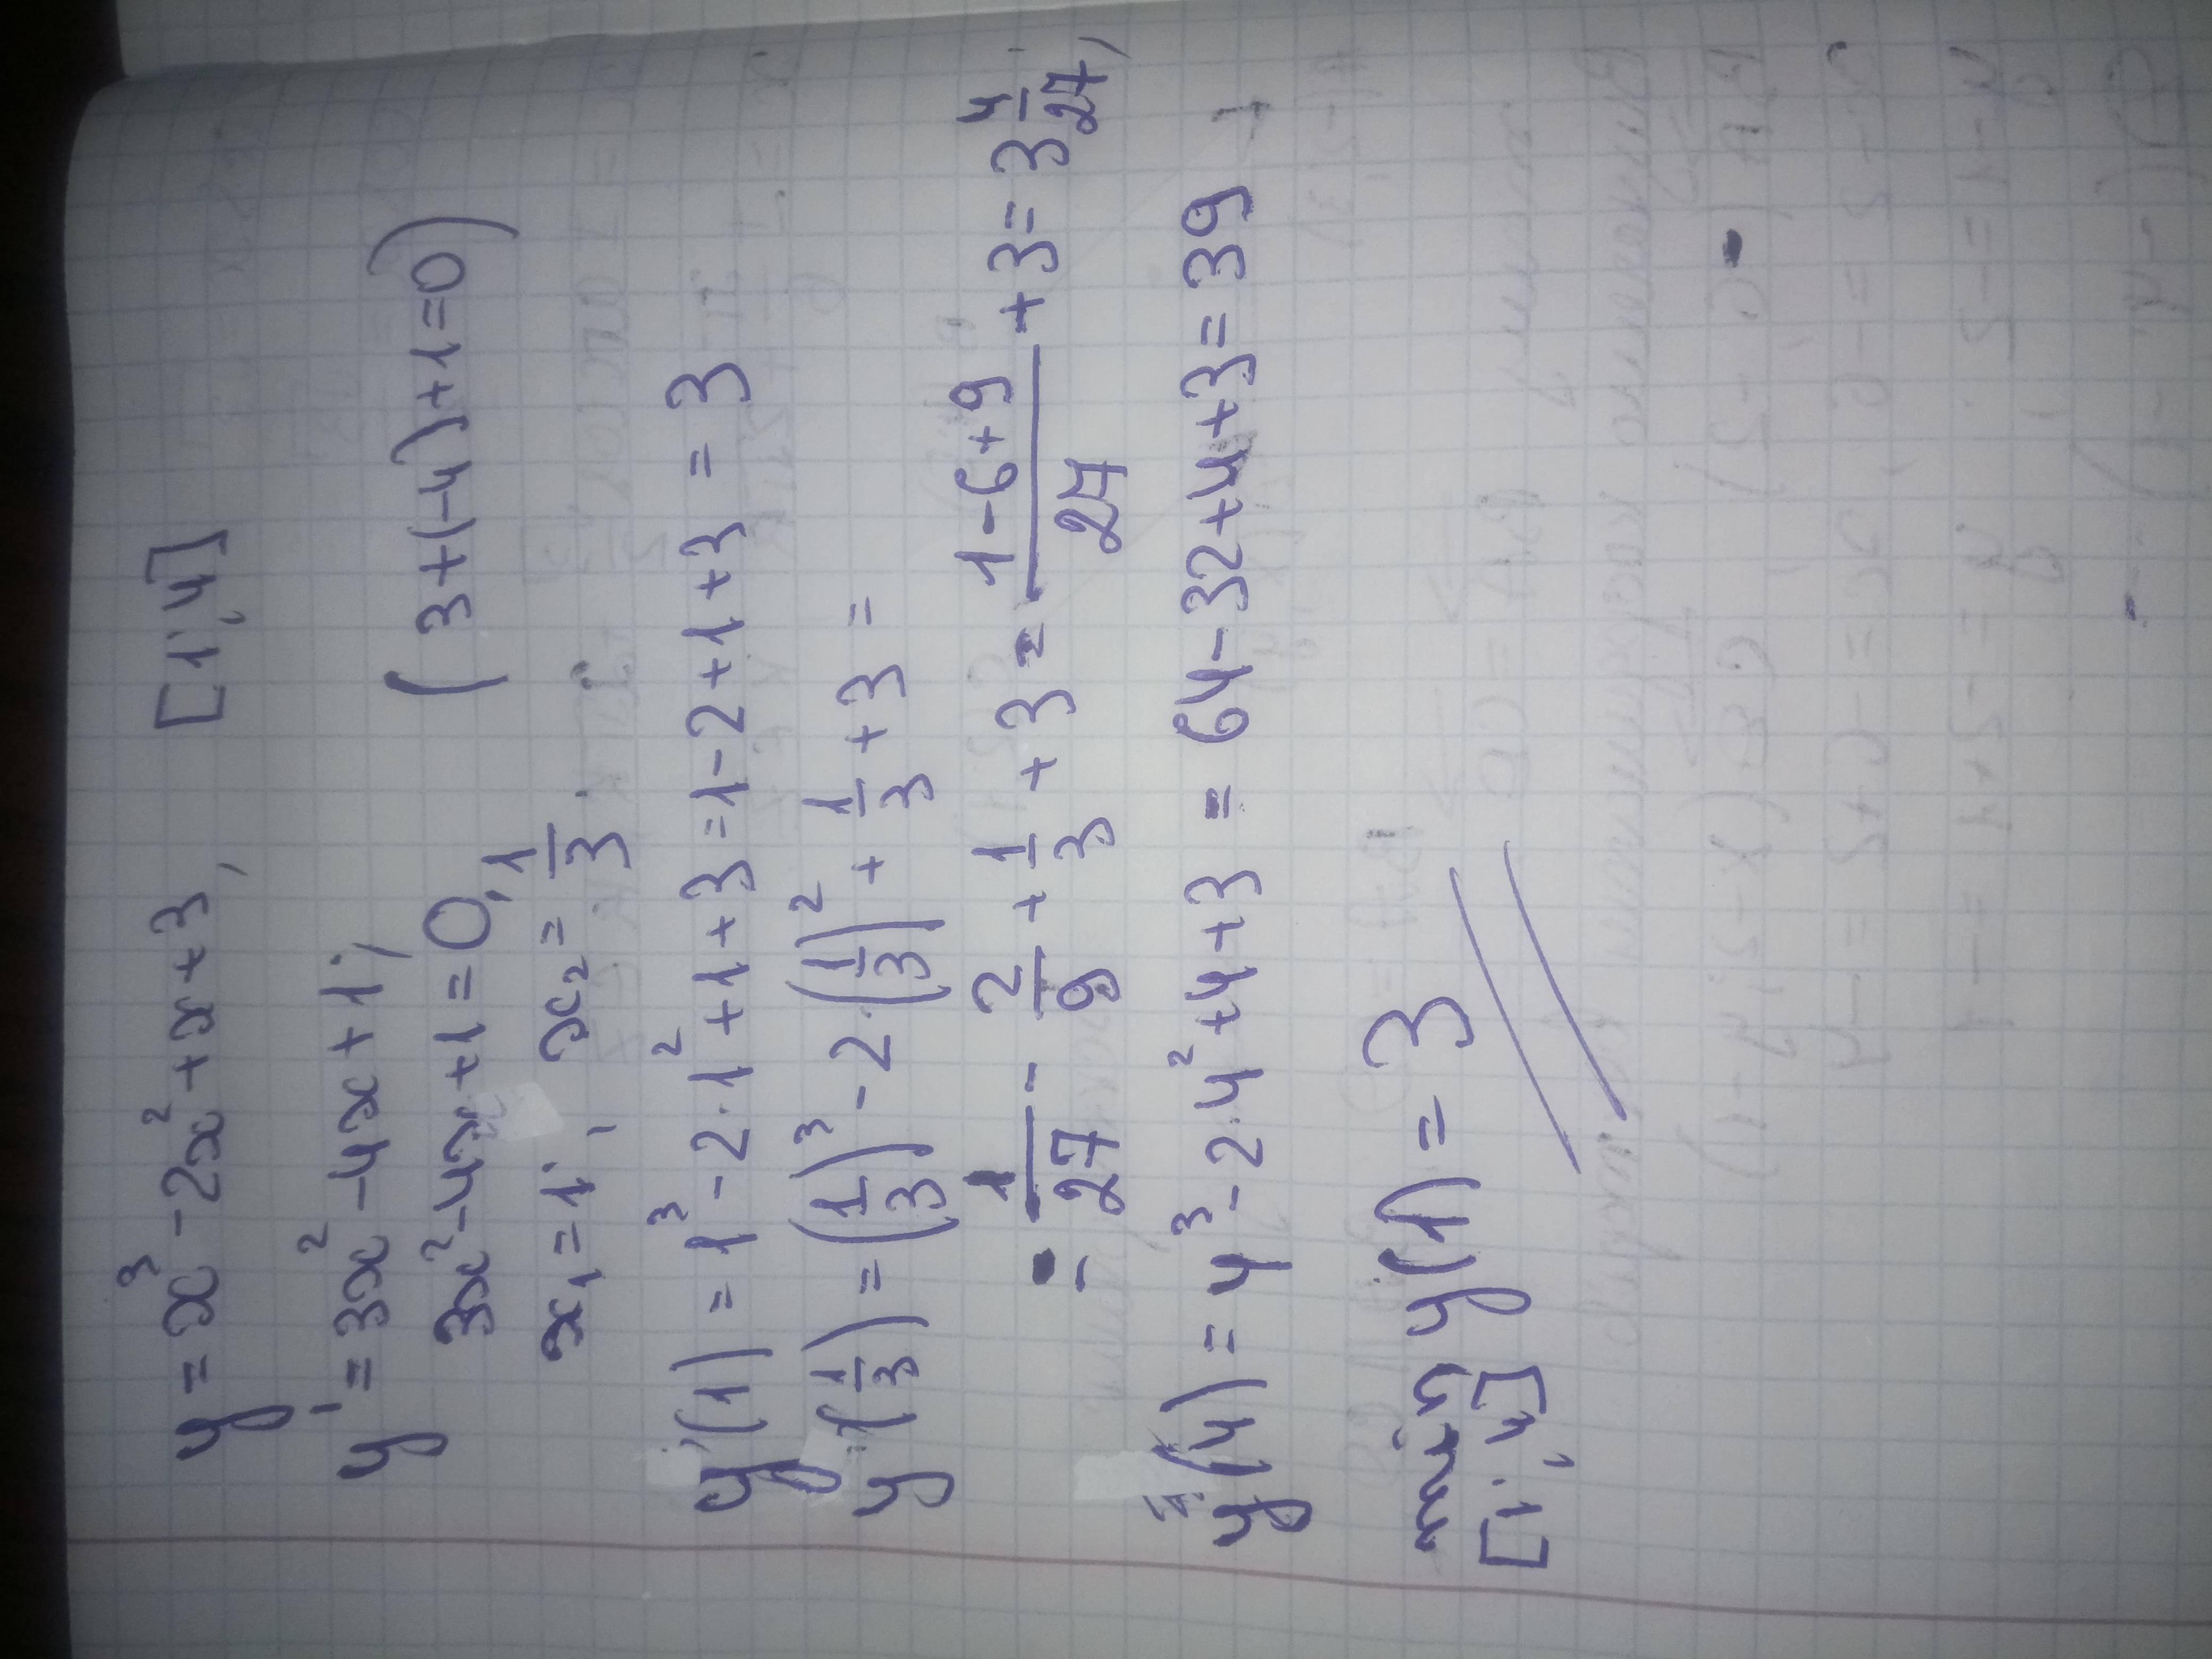 y = x³ - 2x² + x + 3, [1; 4]
y' = 3x² - 4x + 1;
3x² - 4x + 1 = 0, (3 + (-4) + 1 = 0)
x₁ = 1; x₂ = 1/3.
y(1) = 1³ - 2 · 1² + 1 + 3 = 1 - 2 + 1 + 3 = 3
y(1/3) = (1/3)³ - 2 · (1/3)² + 1/3 + 3 =
= 1/27 - 2/9 + 1/3 + 3 = (1 - 6 + 9)/27 + 3 = 3 4/27,
y(4) = 4³ - 2 · 4² + 4 + 3 = 64 - 32 + 4 + 3 = 39
min y(1) = 3
[1; 4]